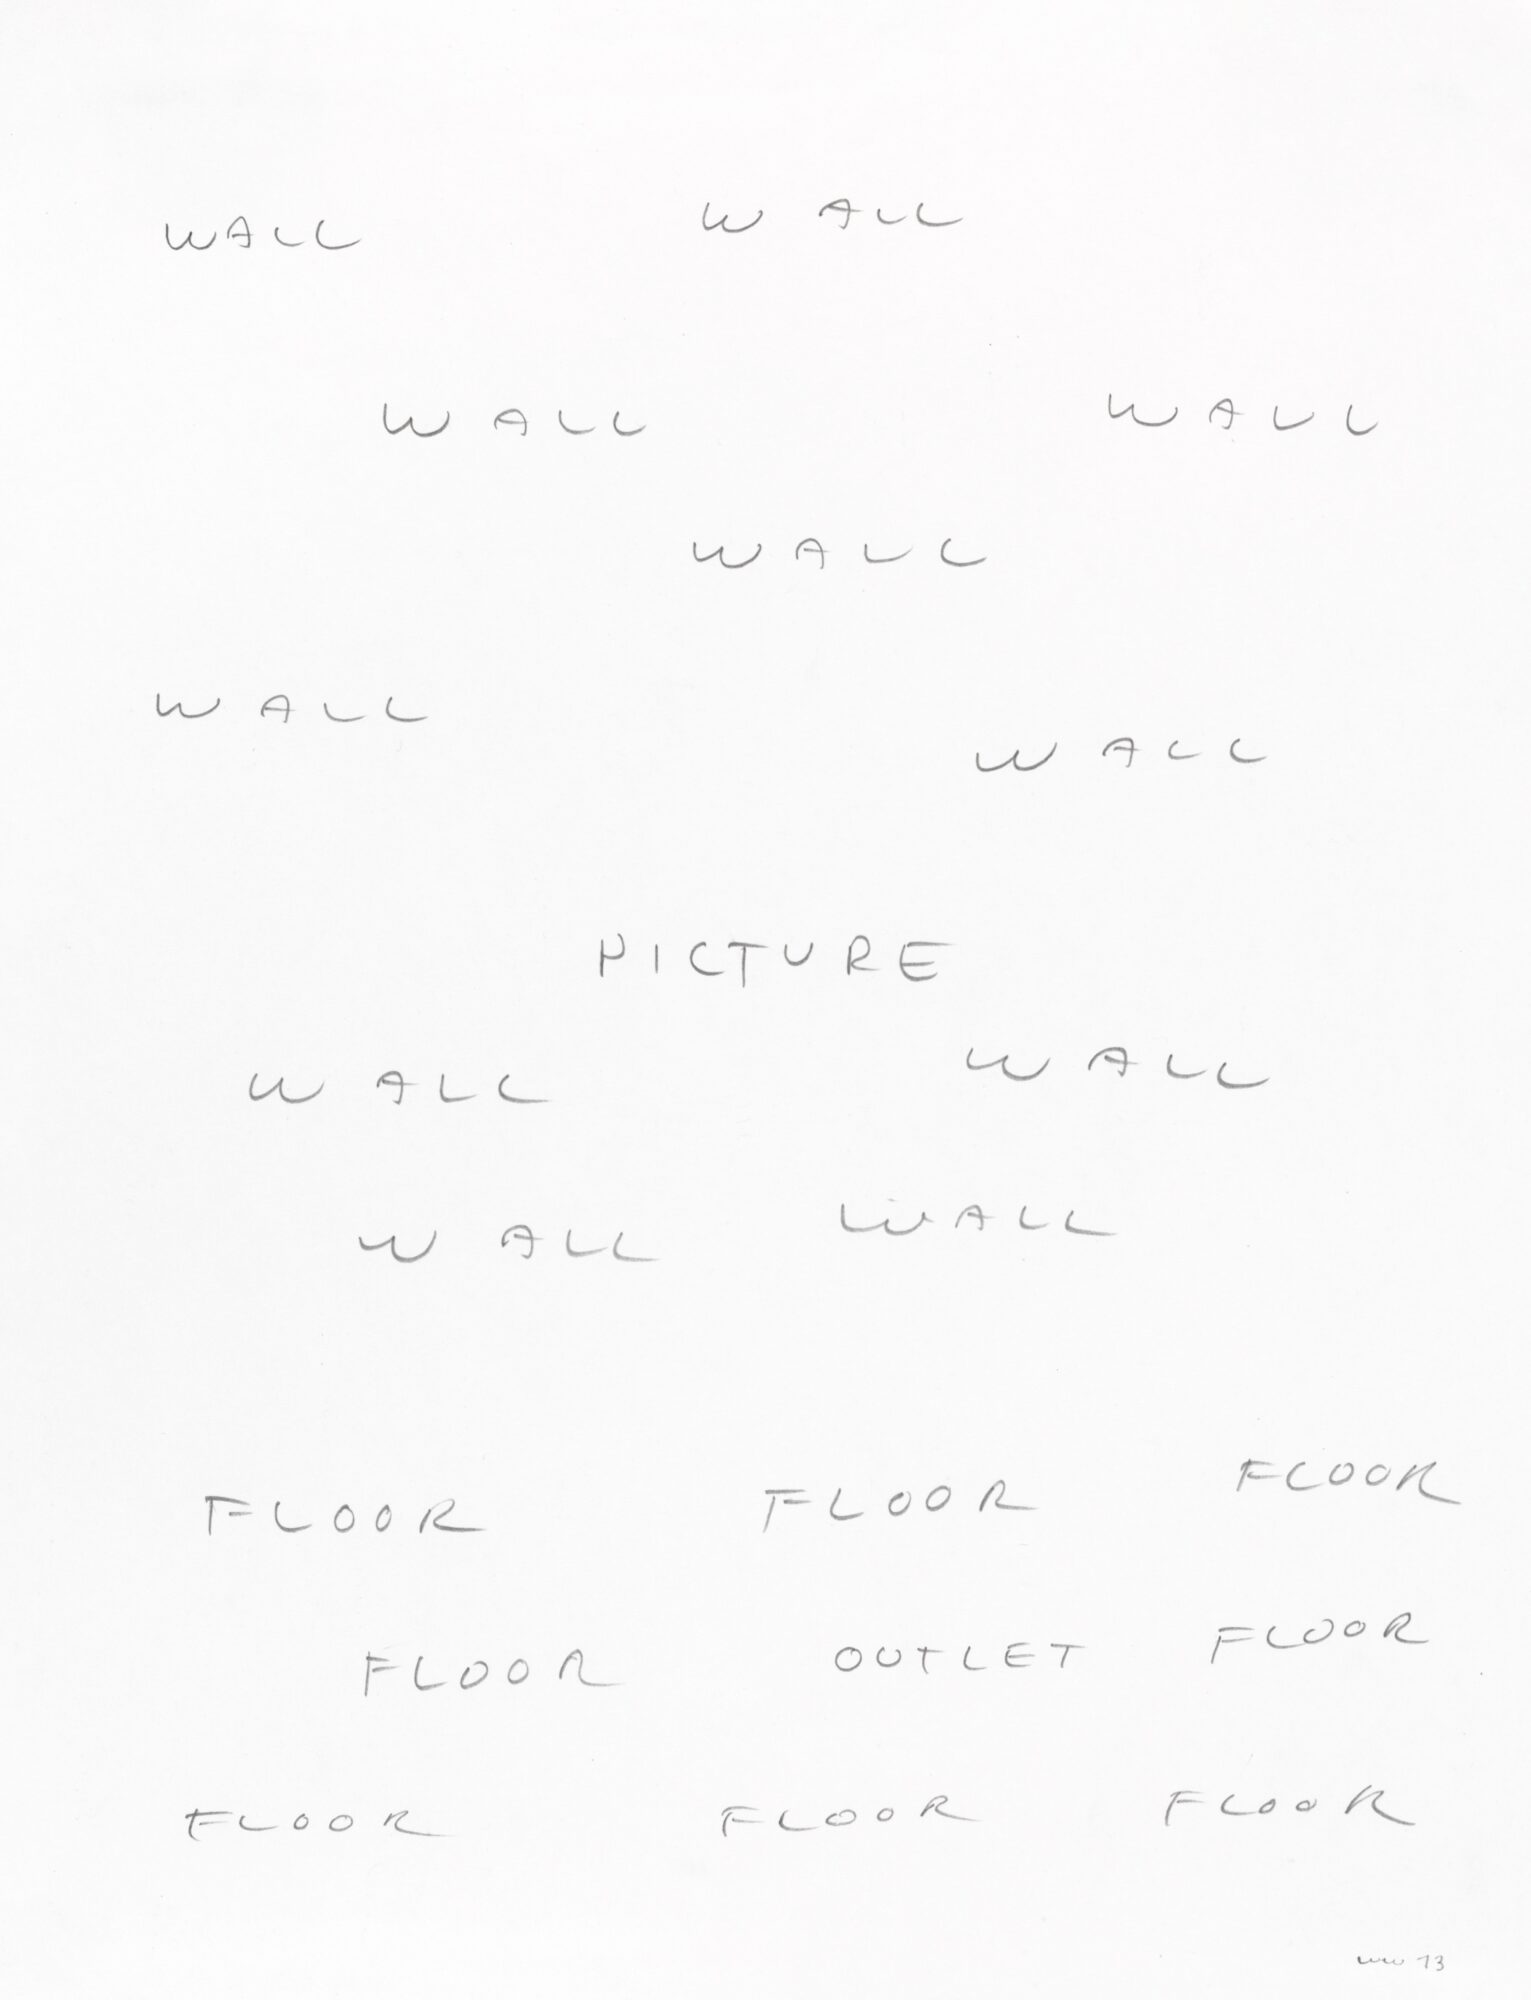 WALL WALL
WALL WALL
WALL
WALL WALL
PICTURE
WALL WALL
WALL WALL
FLOOR FLOOR FLOOR
FLOOR OUTLET FLOOR
FLOOR FLOOR FLOOR
13